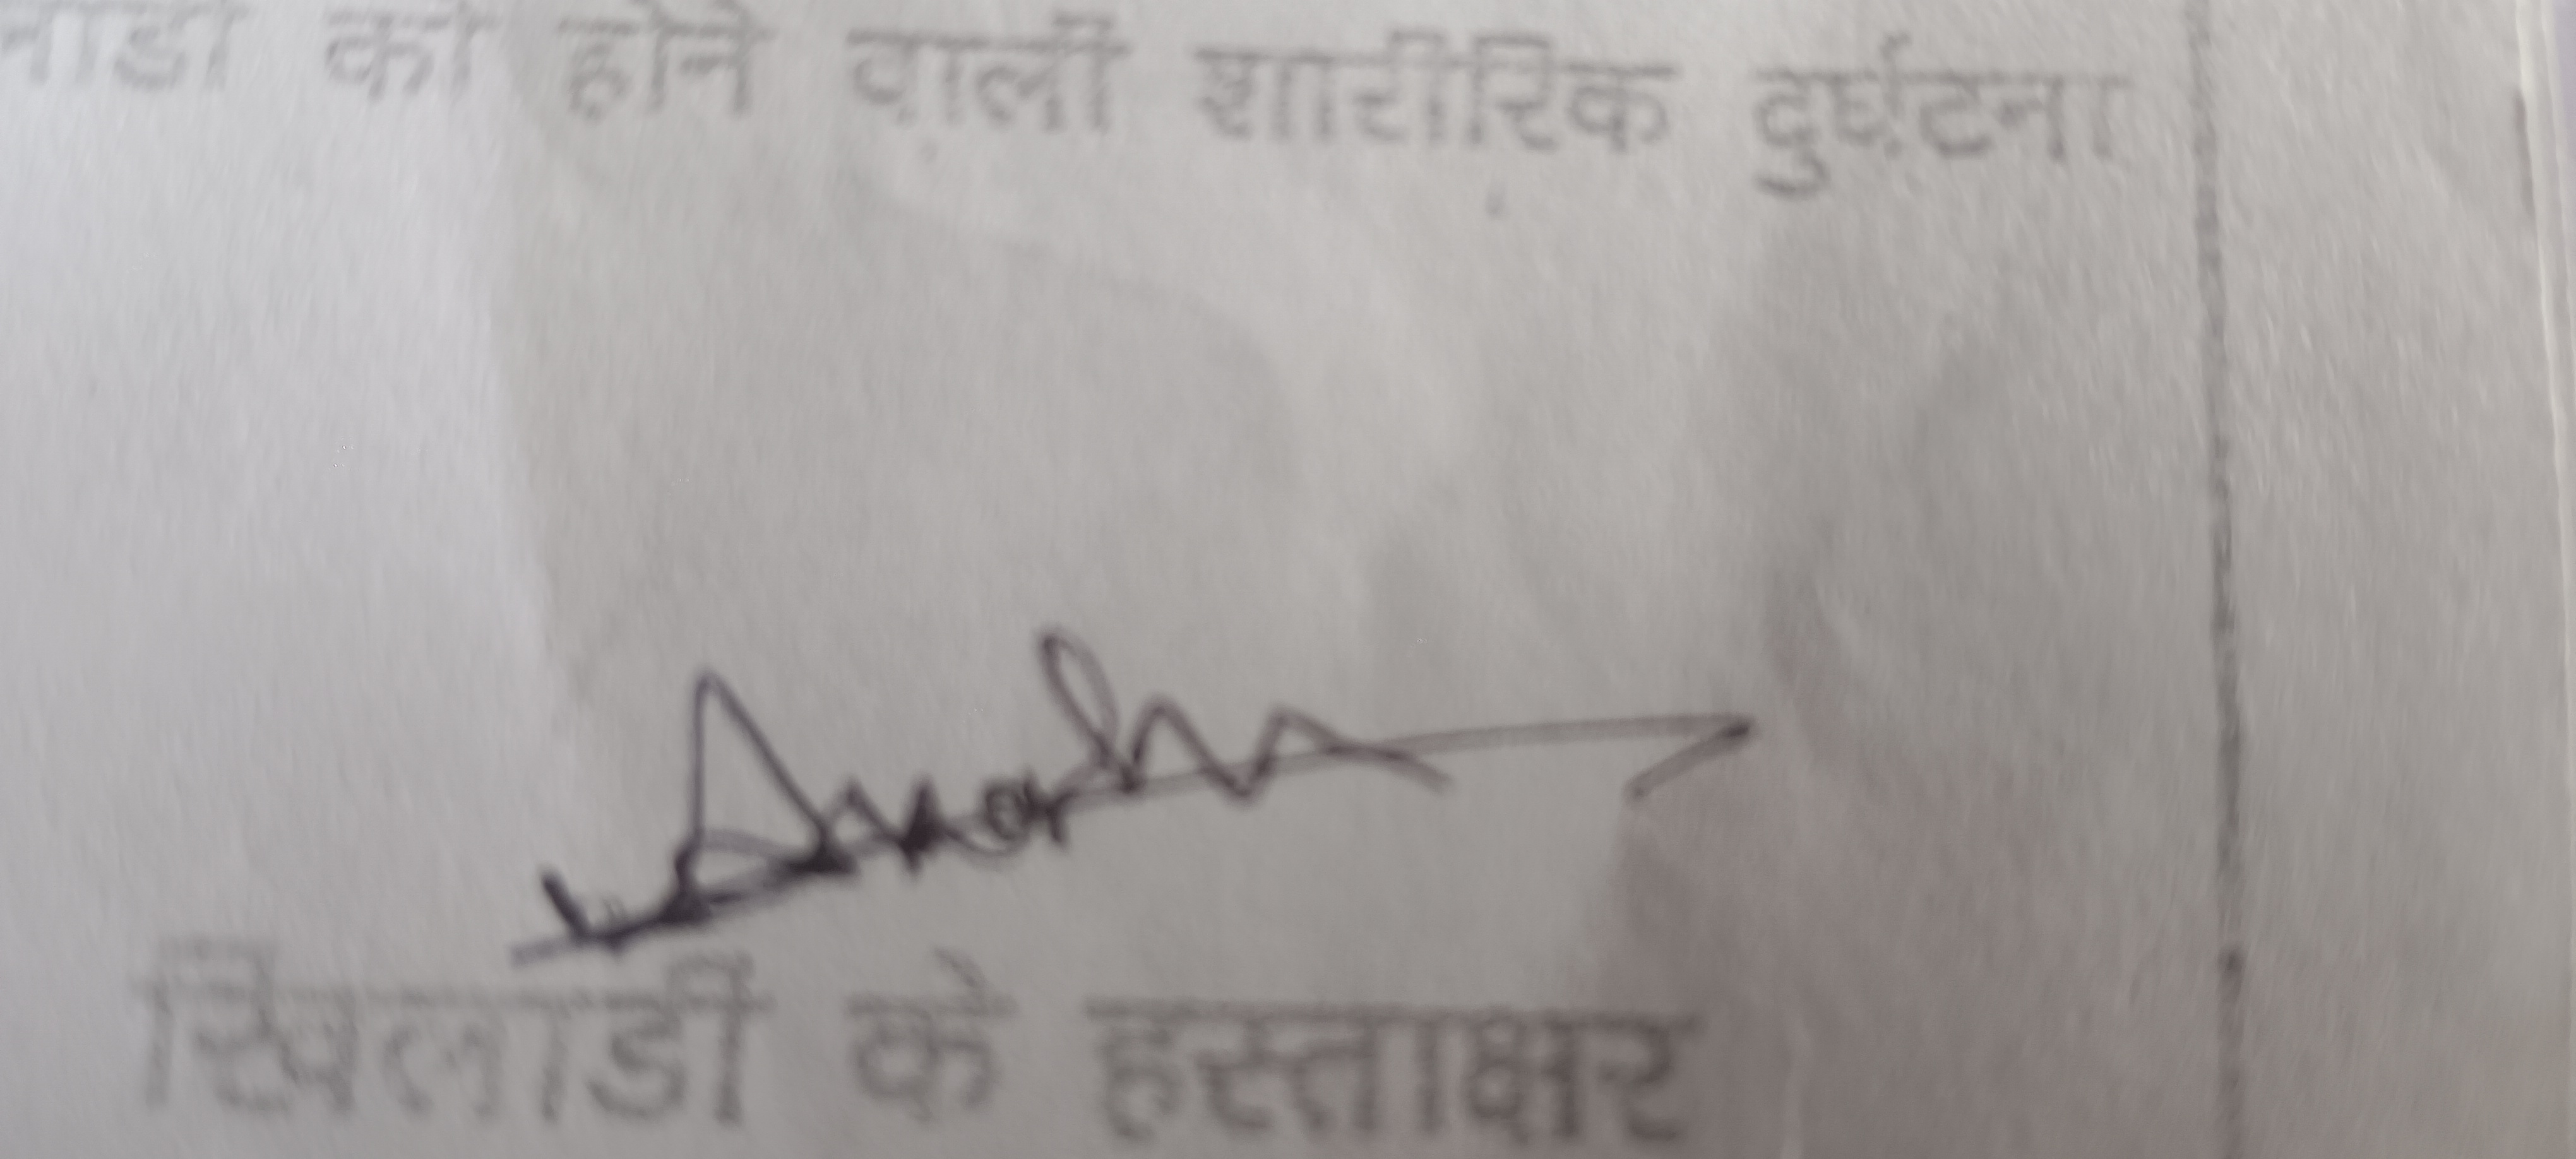 को होने वाली शारीरिक दुर्घटना
खिलाडी के हस्ताक्षर